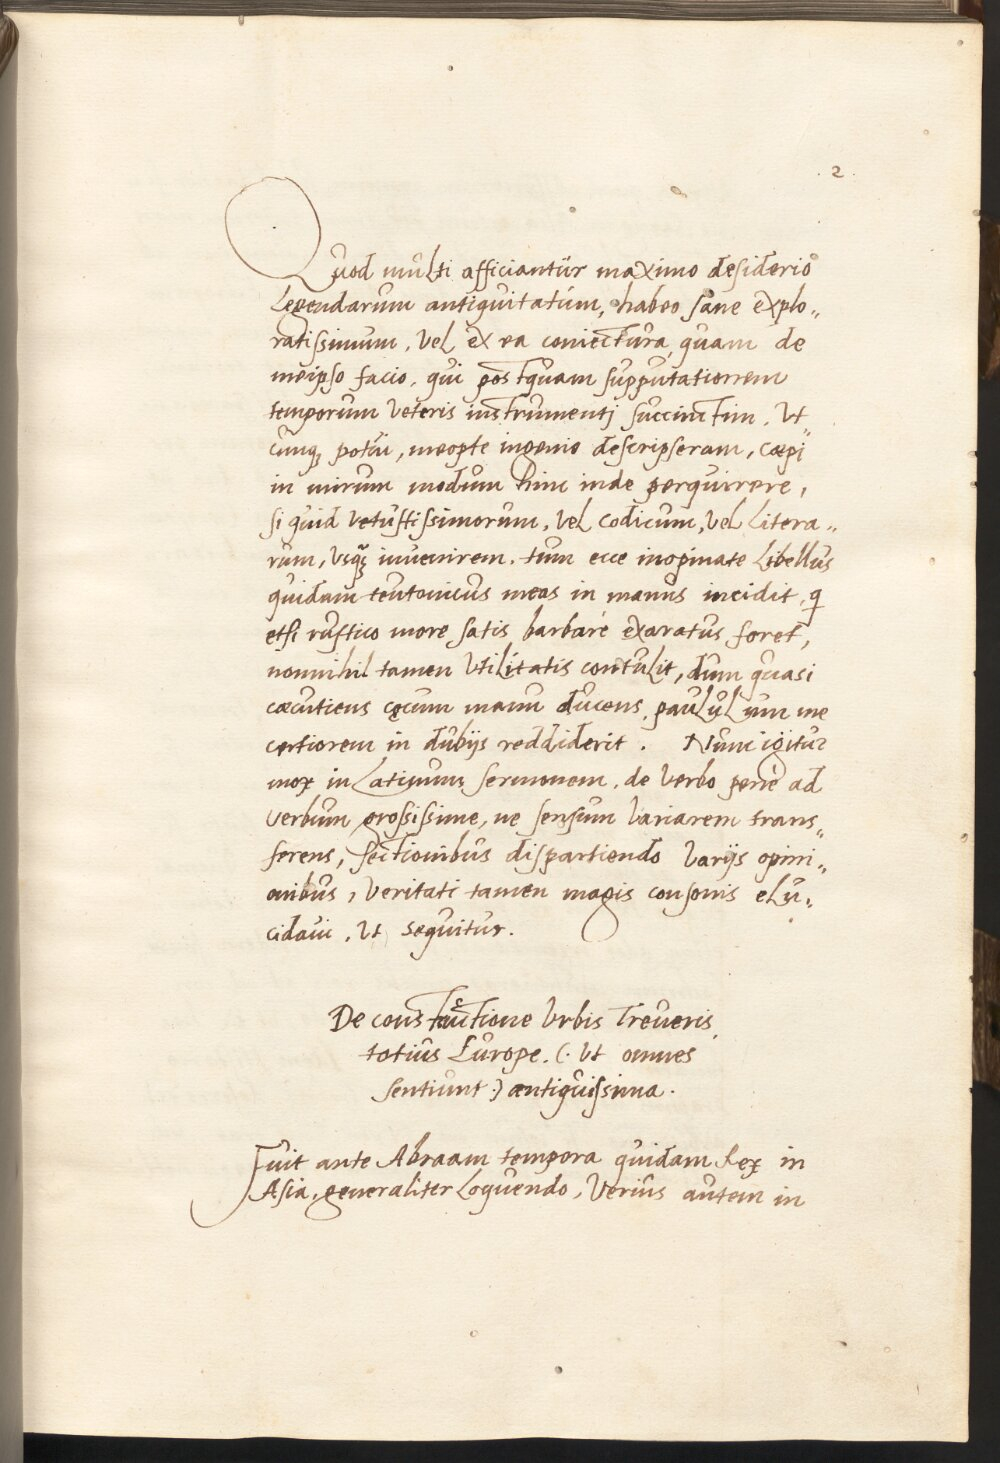 . 2 .
Quod multi afficiantur maximo desiderio
legendarum antiquitatum, habeo sane explo„
ratissimum, vel ex ea coniectura, quam de
meipso facio, qui postquam supputationem
temporum veteris instrumentj succinctim, Vt„
cunq; potui, meopte ingenio descripseram, cœpi
in mirum modum hinc inde perquirere,
si quid vetustissimorum, vel codicum, vel litera„
rum, vsq̃; invenirem. tum ecce inopinate libellus
quidam teutonicus meas in manus incidit, q̃
etsi rustico more satis barbarè exaratus foret,
nonnihil tamen vtilitatis contulit, dum quasi
cœcutiens cęcum manu ducens, paululum me
certiorem in dubijs reddiderit. Nunc igitur
mox in latinum sermonem, de verbo penè ad
verbum grossissime, ne sensum variarem trans„
ferens, sectionibus dispartiendo varijs opini„
onibus, veritati tamen magis consonis elu„
cidavi, Vt sequitur.
De constructione Vrbis Treveris,
totius Europe. (. Vt omnes
sentiunt .) antiquissima.
Fuit ante Abraam tempora quidam Rex in
Asia, generaliter loquendo, Verius autem in